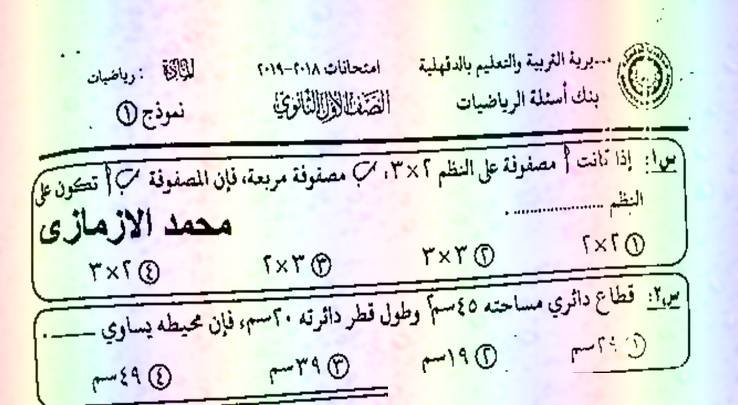 مديرية التربية والتعليم بالدقهلية
امتحانات ٢٠١٨-٢٠١٩
المادة : رياضيات
بنك أسئلة الرياضيات
الصف الأول الثانوي
نموذج (١)
س١: إذا كانت أ مصفوفة على النظم ٢×٣، ب مصفوفة مربعة، فإن المصفوفة أ ب تكون على
النظم .................... .
محمد الازمازى
(١) ٢×٢ (٢) ٣×٣ (٣) ٣×٢ (٤) ٢×٣
س٢: قطاع دائري مساحته ٤٥سم٢ وطول قطر دائرته ٢٠سم، فإن محيطه يساوي ــــــ .
(١) ٢٩سم (٢) ١٩سم (٣) ٣٩سم (٤) ٤٩سم